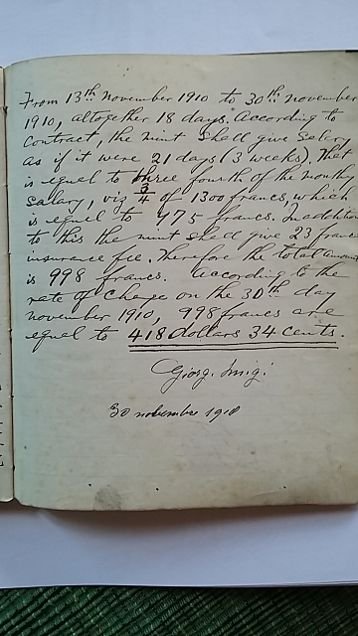 From 13th november 1910 to 30th november
1910, altogether 18 days. According to
Contract, the mint shall give Salary
as if it were 21 days (3 weeks), That
is equel to three fourth of the monthly
Salary, viz 3/4 of 1300 francs, which
is equel to 975 francs. In addition
to this the mint shall give 23 francs
insurance fee. Therefore the total amount
is 998 francs. According to the
rate of change on the 30th day
november 1910, 998 francs are
equel to 418 dollars 34 cents.
Giorgi
30 novembre 1910